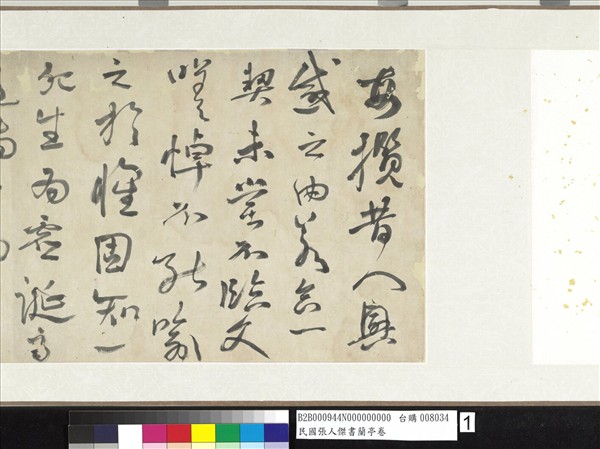 每攬昔人興
感之由若合一
契未嘗不臨文
嗟悼不能喻
之於懷固知一
死生為虛誕齊
B2B000944N000000000 台購 008034
民國張人傑書蘭亭卷
1